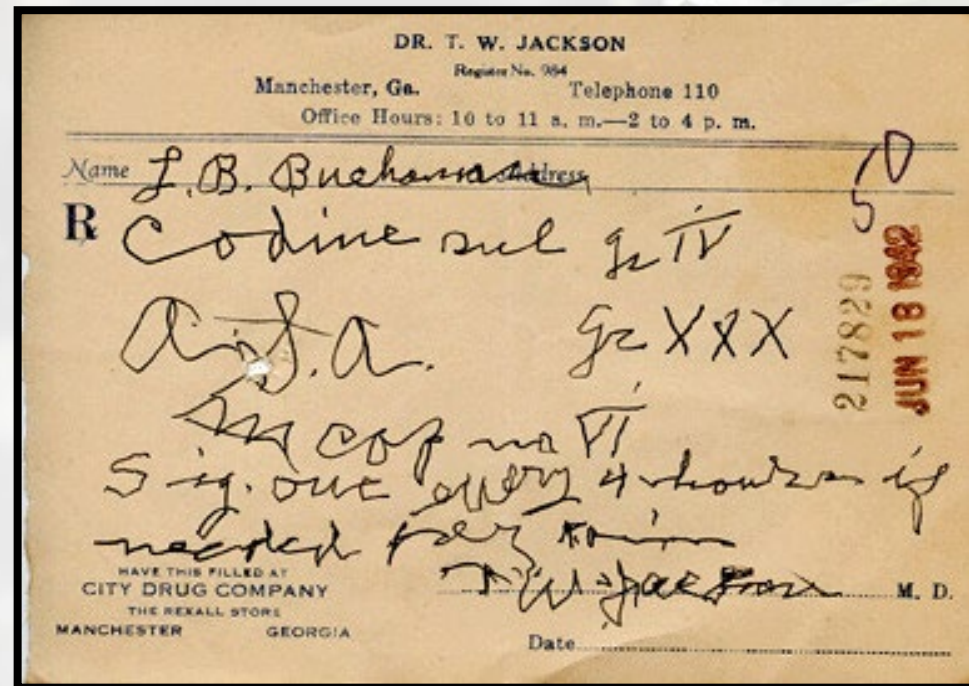 DR. T. W. JACKSON
Register No. 984
Manchester, Ga. Telephone 110
Office Hours: 10 to 11 a. m.—2 to 4 p. m.
Name L. B. Buchanan Address
50
R Codine sul gr IV
A.S.A. gr XXX
M cap no VI
Sig. one every 4 hours if
needed for pain
217829
JUN 18 1942
HAVE THIS FILLED AT
CITY DRUG COMPANY
THE REXALL STORE
MANCHESTER GEORGIA
T W Jackson M. D.
Date